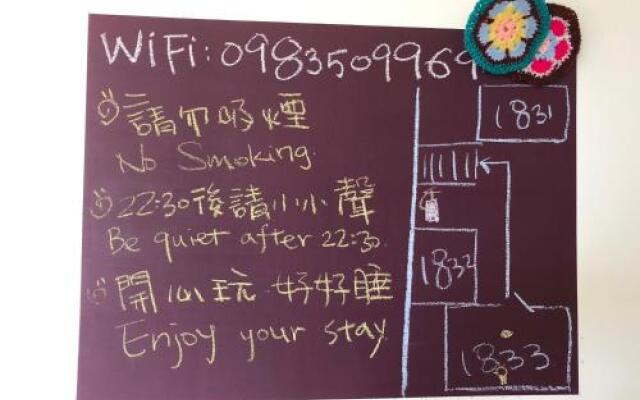 WiFi: 0983509969
請勿吸煙
No Smoking.
22:30後請小小聲
Be quiet after 22:30.
開心玩 好好睡
Enjoy your stay
1831
1832
1833